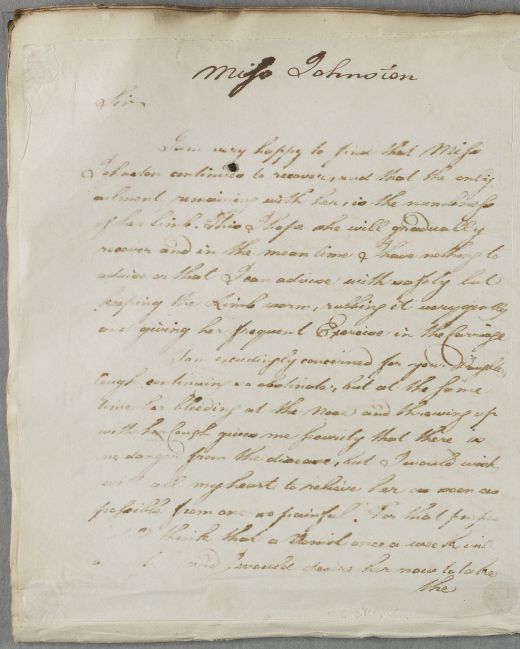 Miss Johnston
Sir
I am very happy to find that Miss
Johnston continues to recover, and that the only
ailment remaining with her, is the numbness
of her limb. This I hope she will gradually
recover and in the mean time I have nothing to
advise or that I can advise with safety but
keeping the Limb warm, rubbing it very gently
and giving her frequent Exercise in the Carriage
I am exceedingly concerned for your
Cough continuing so obstinate, but at the same
time her bleeding at the Nose and throwing up
with her Cough gives me security that there is
no danger from the disease, but I would wish
with all my heart to relieve her as soon as
possible from one so painful. For that
I think that a Vomit once a week will
and I would desire her now to take
the